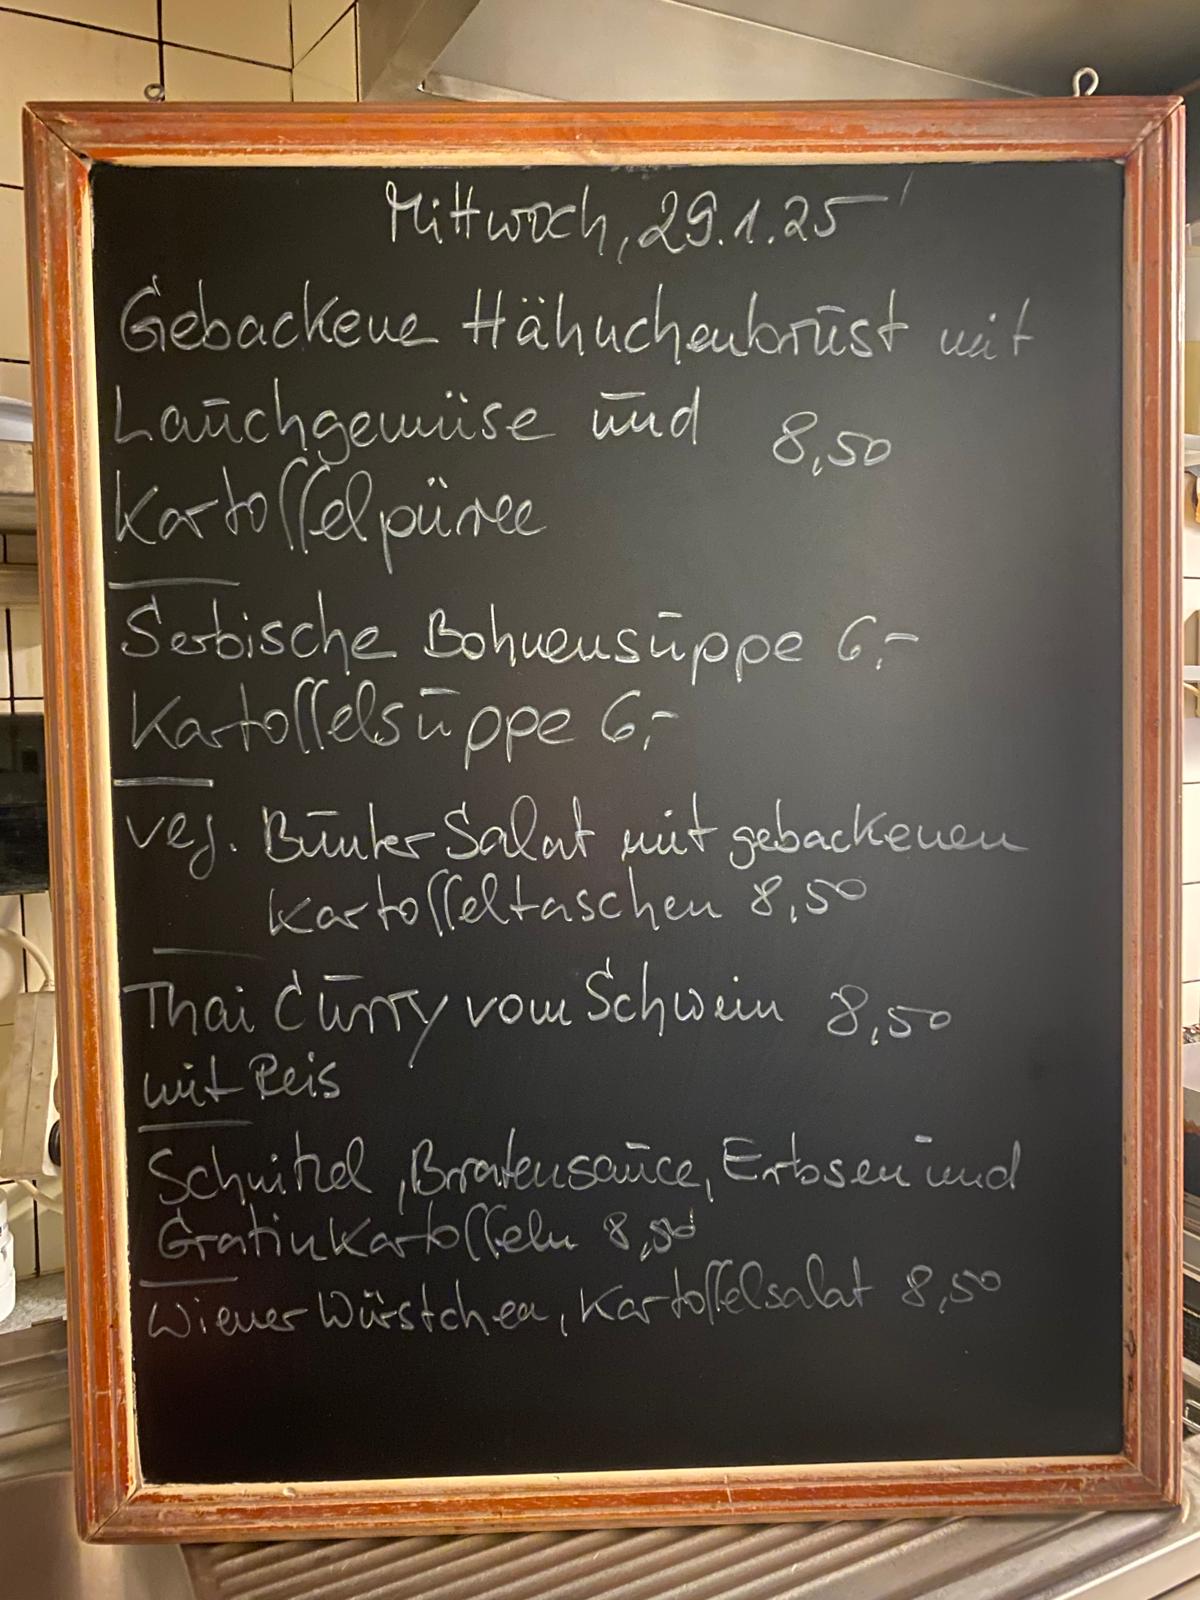 Mittwoch, 29.1.25
Gebackene Hähnchenbrust mit
Lauchgemüse und 8,50
Kartoffelpüree
Serbische Bohnensuppe 6,-
Kartoffelsuppe 6,-
veg. Bunter Salat mit gebackenen
Kartoffeltaschen 8,50
Thai Curry vom Schwein 8,50
mit Reis
Schnitzel, Bratensauce, Erbsen und
Gratinkartoffeln 8,50
Wiener Würstchen, Kartoffelsalat 8,50